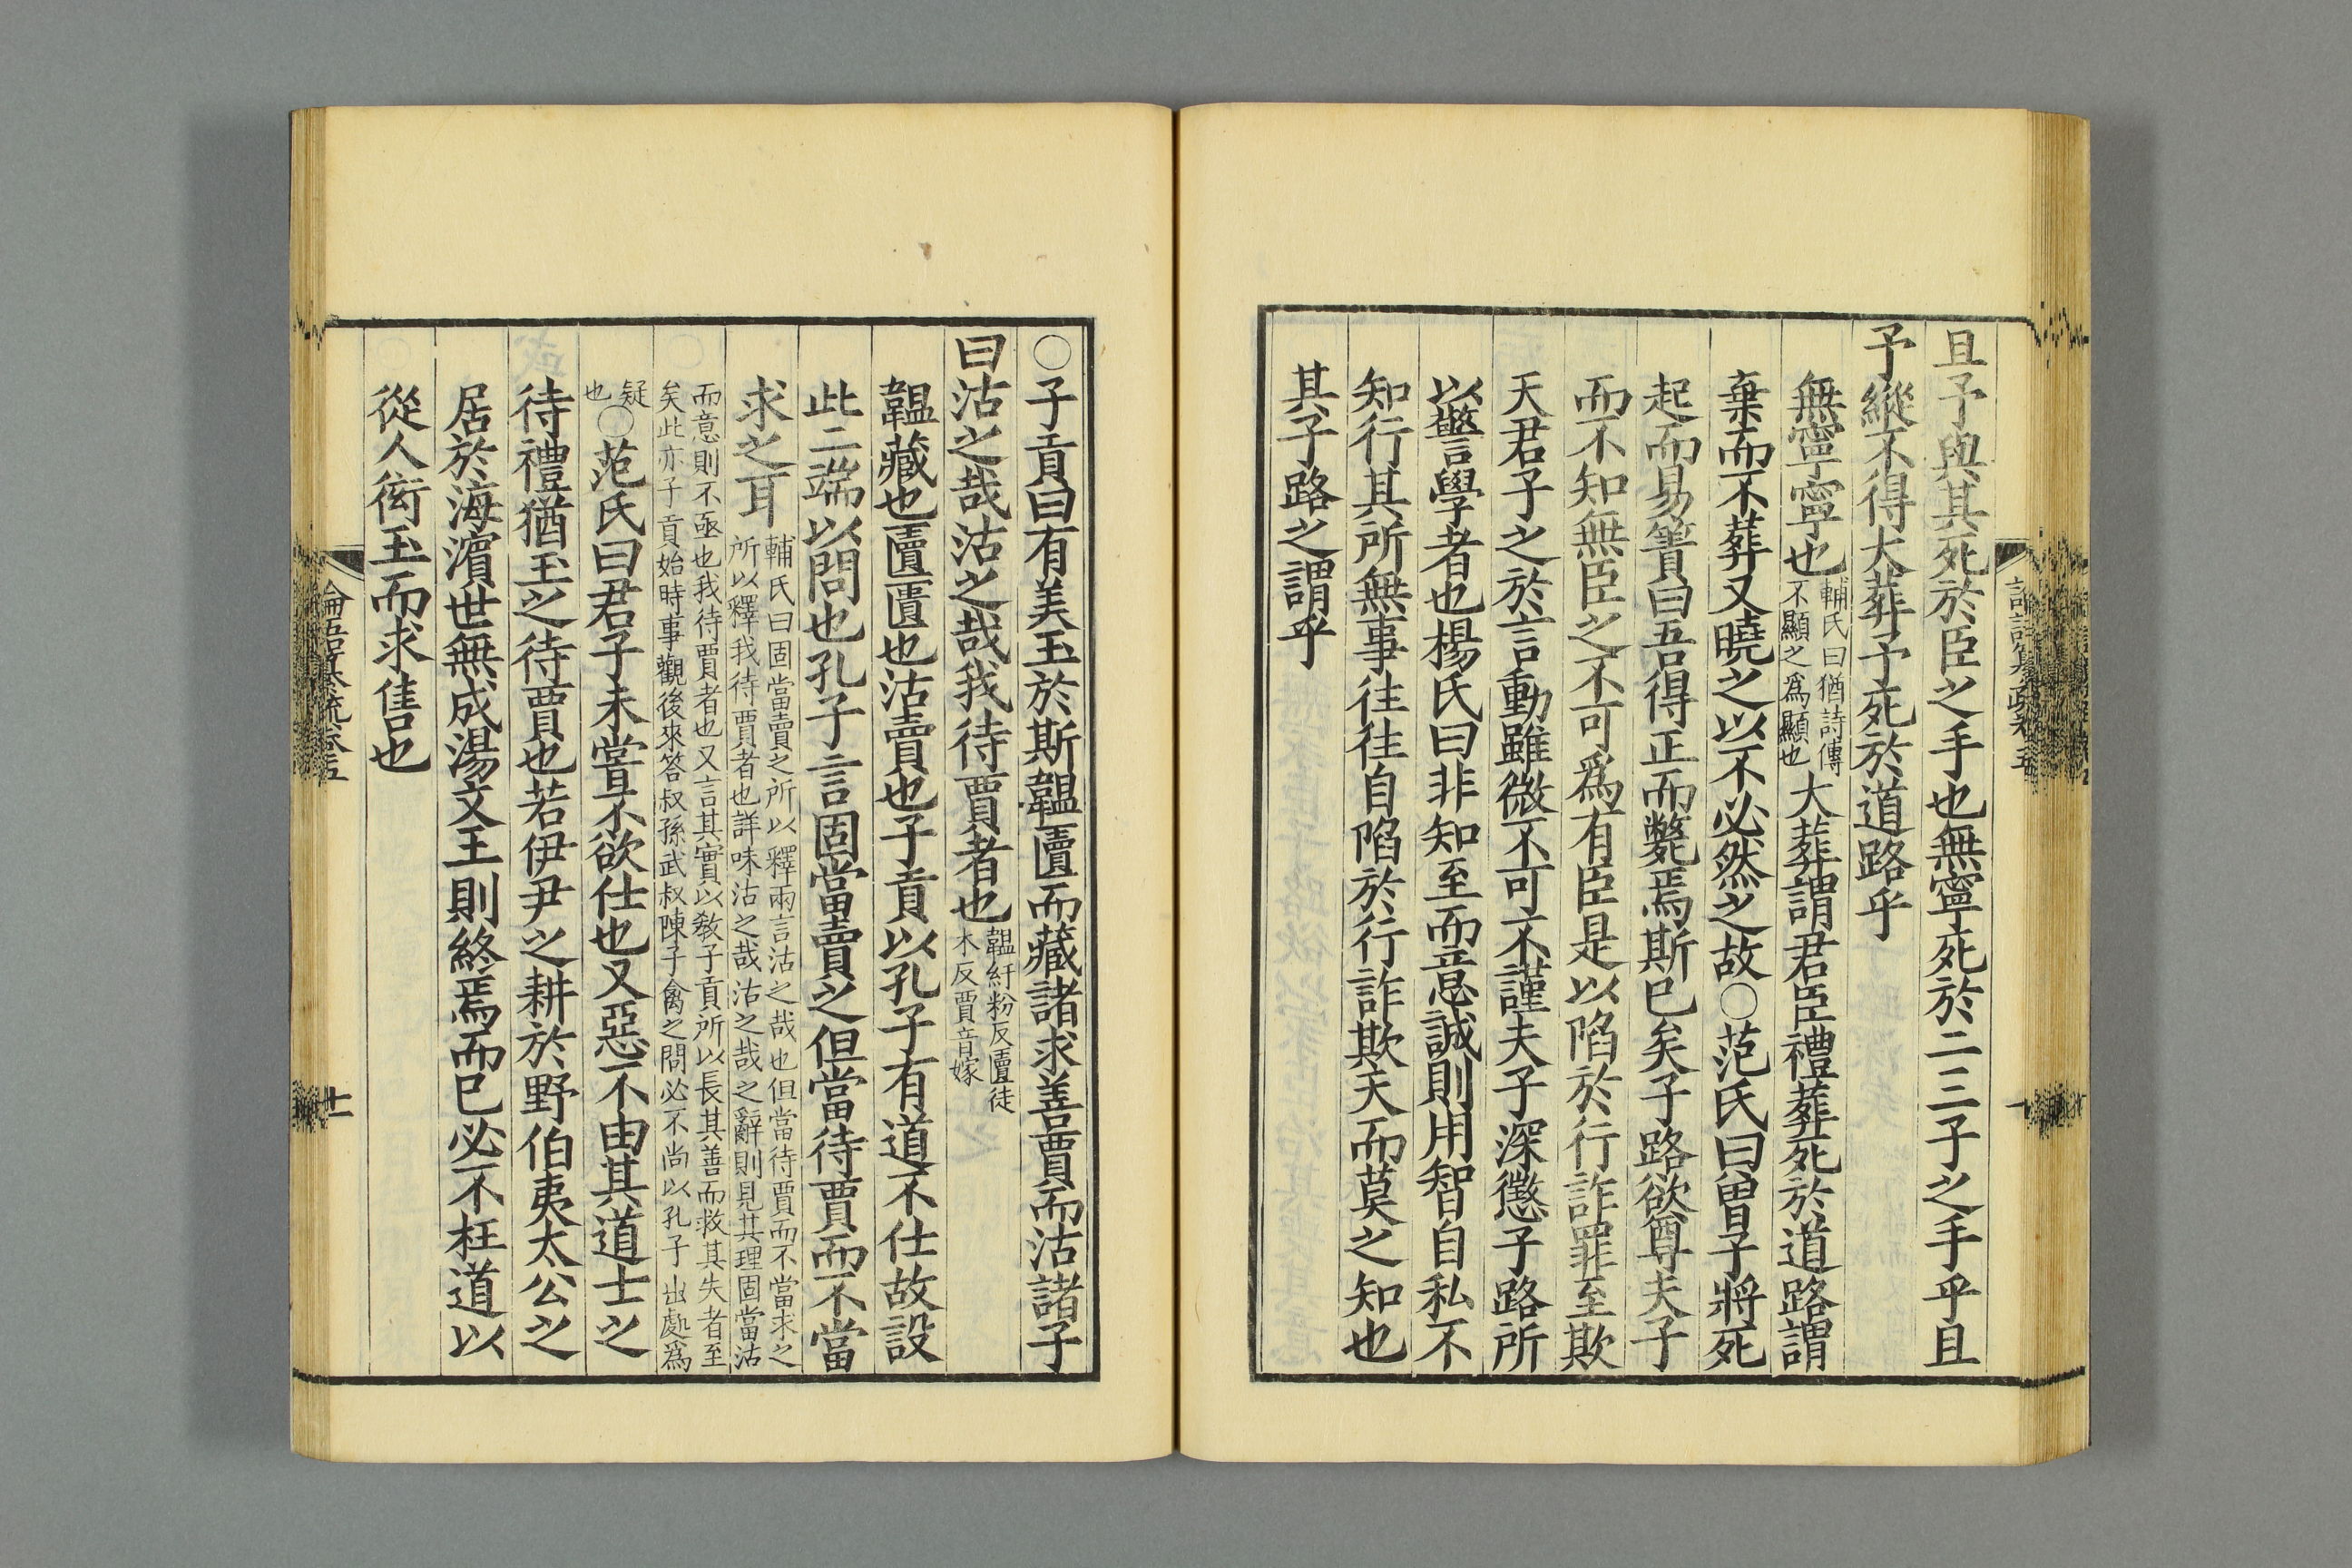 且予與其死於臣之手也無寧死於二三子之手乎且
予縱不得大葬予死於道路乎
無寧寧也輔氏曰猶詩傳不顯之爲顯也大葬謂君臣禮葬死於道路謂
棄而不葬又曉之以不必然之故○范氏曰曾子將死
起而易簀曰吾得正而斃焉斯已矣子路欲尊夫子
而不知無臣之不可爲有臣是以陷於行詐罪至欺
天君子之於言動雖微不可不謹夫子深懲子路所
以警學者也楊氏曰非知至而意誠則用智自私不
知行其所無事往往自陷於行詐欺天而莫之知也
其子路之謂乎
○子貢曰有美玉於斯韞匵而藏諸求善賈而沽諸子
曰沽之哉沽之哉我待賈者也韞紆粉反匵徒木反賈音嫁
韞藏也匵匱也沽賣也子貢以孔子有道不仕故設
此二端以問也孔子言固當賣之但當待賈而不當
求之耳輔氏曰固當賣之所以釋兩言沽之哉也但當待賈而不當求之
所以釋我待賈者也詳味沽之哉沽之哉之辭則見其理固當沽
而意則不亟也我待賈者也又言其實以敎子貢所以長其善而救其失者至
矣此亦子貢始時事觀後來答叔孫武叔陳子禽之問必不尚以孔子出處爲
疑也○范氏曰君子未嘗不欲仕也又惡不由其道士之
待禮猶玉之待賈也若伊尹之耕於野伯夷太公之
居於海濱世無成湯文王則終焉而已必不枉道以
從人衒玉而求售也
論語纂疏卷五
十一